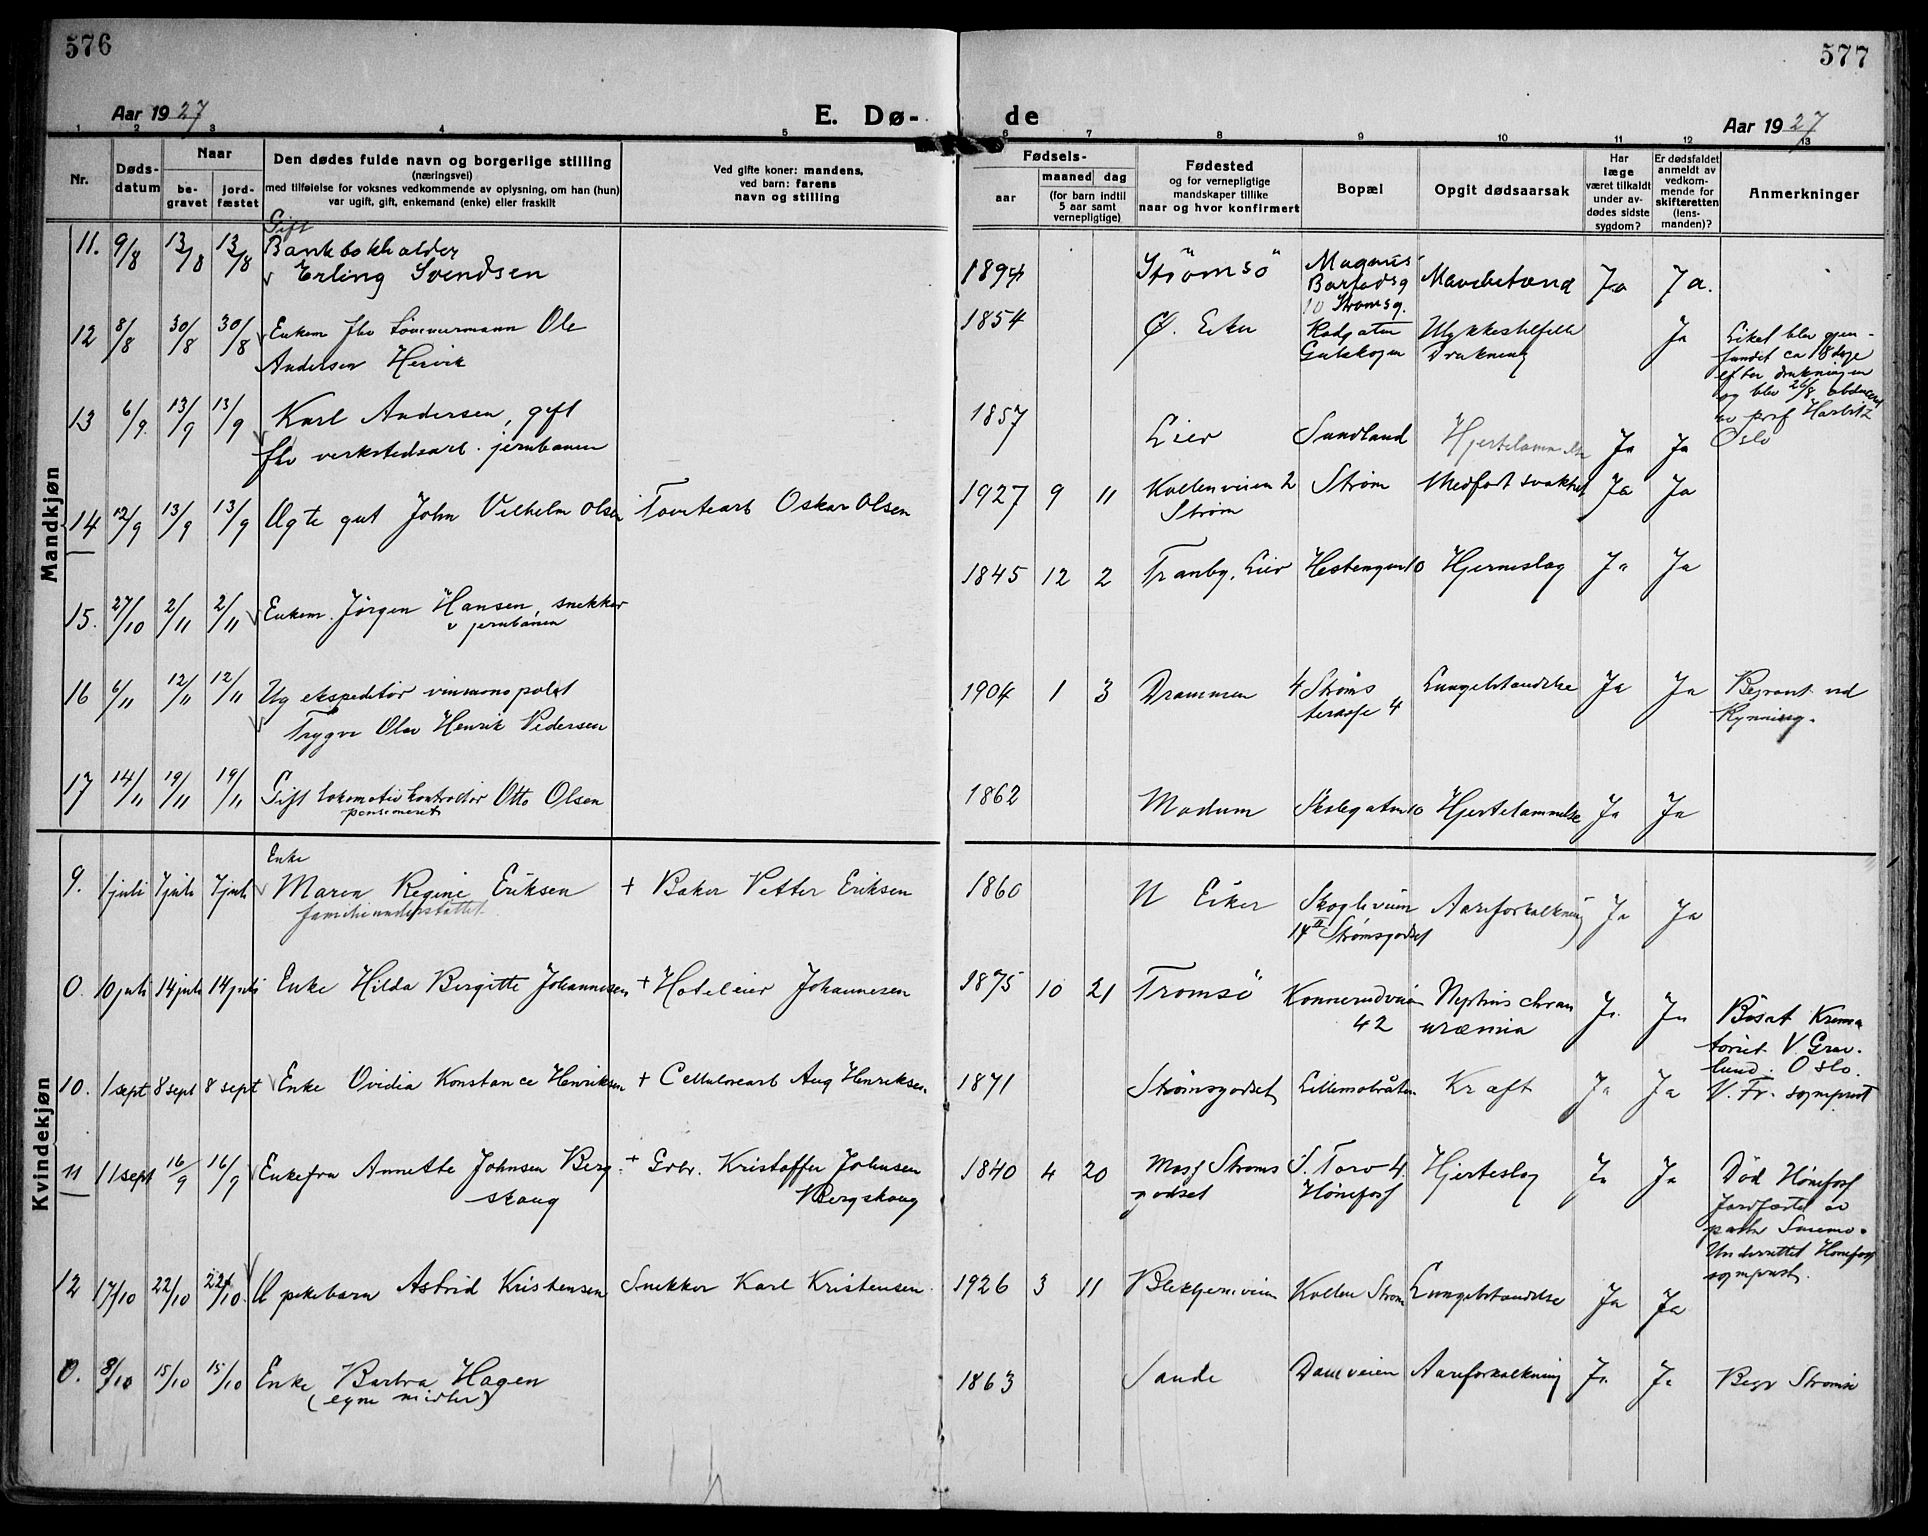 576
577
Aar 1927
E. Dø-
de
Aar 1927
1 2 3 4 5 6 7 8 9 10 11 12 13
Nr.
Døds-
datum
Naar
be-
gravet
jord-
fæstet
Den dødes fulde navn og borgerlige stilling
(næringsvei)
med tilføielse for voksnes vedkommende av oplysning, om han (hun)
var ugift, gift, enkemand (enke) eller fraskilt
Ved gifte koner: mandens,
ved barn: farens
navn og stilling
Fødsels-
aar
maaned dag
(for barn indtil
5 aar samt
vernepligtige)
Fødested
og for vernepligtige
mandskaper tillike
naar og hvor konfirmert
Bopæl
Opgit dødsaarsak
Har
læge
været tilkaldt
under av-
dødes sidste
sygdom?
Er dødsfaldet
anmeldt av
vedkom-
mende for
skifteretten
(lens-
manden)?
Anmerkninger
Mandkjøn
11. 9/8 13/8 13/8 Gift
Bankbokholder
Erling Svendsen
1894 Strömsö Magnus
Barfodsg
10 Strømsg. Mavebetænd Ja Ja.
12 8/8 30/8 30/8 Enkem fhv tömmermann Ole
Andersen Hervik
1854 Ø. Eker Ulykkestilfelle
Drukning Ja Liket blev gjen-
fundet ca 18 dage
efter drukningen
og blev 26/8
av prof Harbitz
Oslo
13 6/9. 13/9 13/9 Karl Andersen, gift
fhv verkstedsarb. jernbanen
1857 Lier Sundland Hjertelammelse Ja Ja
14 12/9 13/9 13/9 Ugte gut John Vilhelm Olsen Tomtearb Oskar Olsen
1927 9 11 Kollenveien 2
Strøm Strøm Medfødt svakhet Ja Ja
15. 27/10 2/11 2/11 Enkem. Jørgen Hansen, snekker
v jernbanen
1845 12 2 Tranby, Lier Hestengen 10 Hjerneslag Ja Ja
16 6/11 12/11 12/11 Ug ekspeditør vinmonopolet
Trygve Olav Henrik Pedersen
1904 1 3 Drammen 4 Strøms
terasse 4 Lungebetændelse Ja Ja
17 14/11 19/11 19/11 Gift lokomotiv kontrolør Otto Olsen
pensioneret
1862 Modum Skolegaten 10 Hjertelammelse Ja Ja
Kvindekjøn
9. 1 juli 7 juli 7 juli Enke
Maren Regine Eriksen
familieunderstøttet + Baker Petter Eriksen
1860 N Eiker Skogliveien
14 II Strømsgodset Aareforkalkning Ja Ja
0. 10 juli 14 juli 14 juli Enke Hilda Bergitte Johannesen + Hoteleier Johannesen
1875 10 21 Tromsö Konnerudveien
42 uræmia Ja. Ja Bisat Krema
toriet V Grav-
lund. Oslo.
V. Fr. sogneprest
10. 1 sept 8 sept 8 sept Enke Ovidia Konstance Henriksen + Cellulosearb Aug Henriksen
1871 Strømsgodset Kræft Ja Ja
11 11 sept 16/9 16/9 Enkefru Annette Johnsen Berg-
skaug + Grbr. Kristoffer Johnsen
Bergskaug
1840 4 20 Strøms
godset S. Torv 4,
Hönefoss Hjerteslag Ja Ja Død Hönefoss
Jordfæstet av
Underrettet Hönefoss
sognprest.
12 17/10 22/10 22/10. U pikebarn Astrid Kristensen Snekker Karl Kristensen
1926 3 11 Kollen Strøm Lungebetændelse Ja Ja
0. 8/10 15/10 15/10 Enke Barbra Hagen
(egne midler)
1863 Sande Damveien Aareforkalkning Ja Ja Begr Strømsö